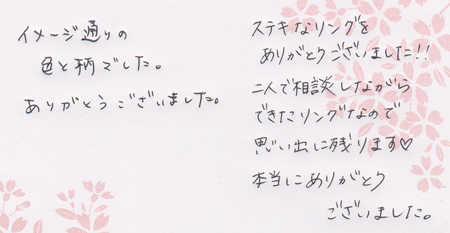 イメージ通りの
色と柄でした。
ありがとうございました。
ステキなリングを
ありがとうございました!!
二人で相談しながら
できたリングなので
思い出に残ります♡
本当にありがとう
ございました。